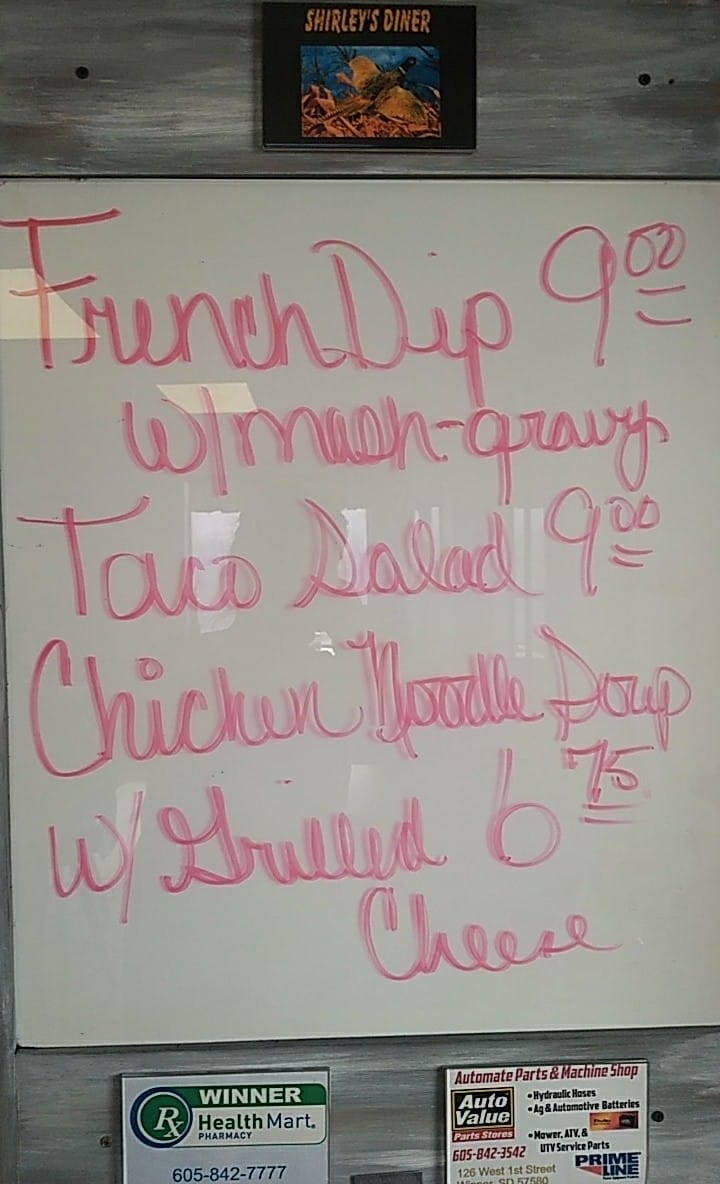 SHIRLEY'S DINER
French Dip 9 00
w/mash-gravy
Taco Salad 9 00
Chicken Noodle Soup
w/ Grilled 6 75
Cheese
WINNER
Rx Health Mart.
PHARMACY
605-842-7777
Automate Parts & Machine Shop
Auto Value
Parts Stores
• Hydraulic Hoses
• Ag & Automotive Batteries
• Mower, ATV, &
UTV Service Parts
605-842-3542
126 West 1st Street
Winner, SD 57580
PRIME LINE